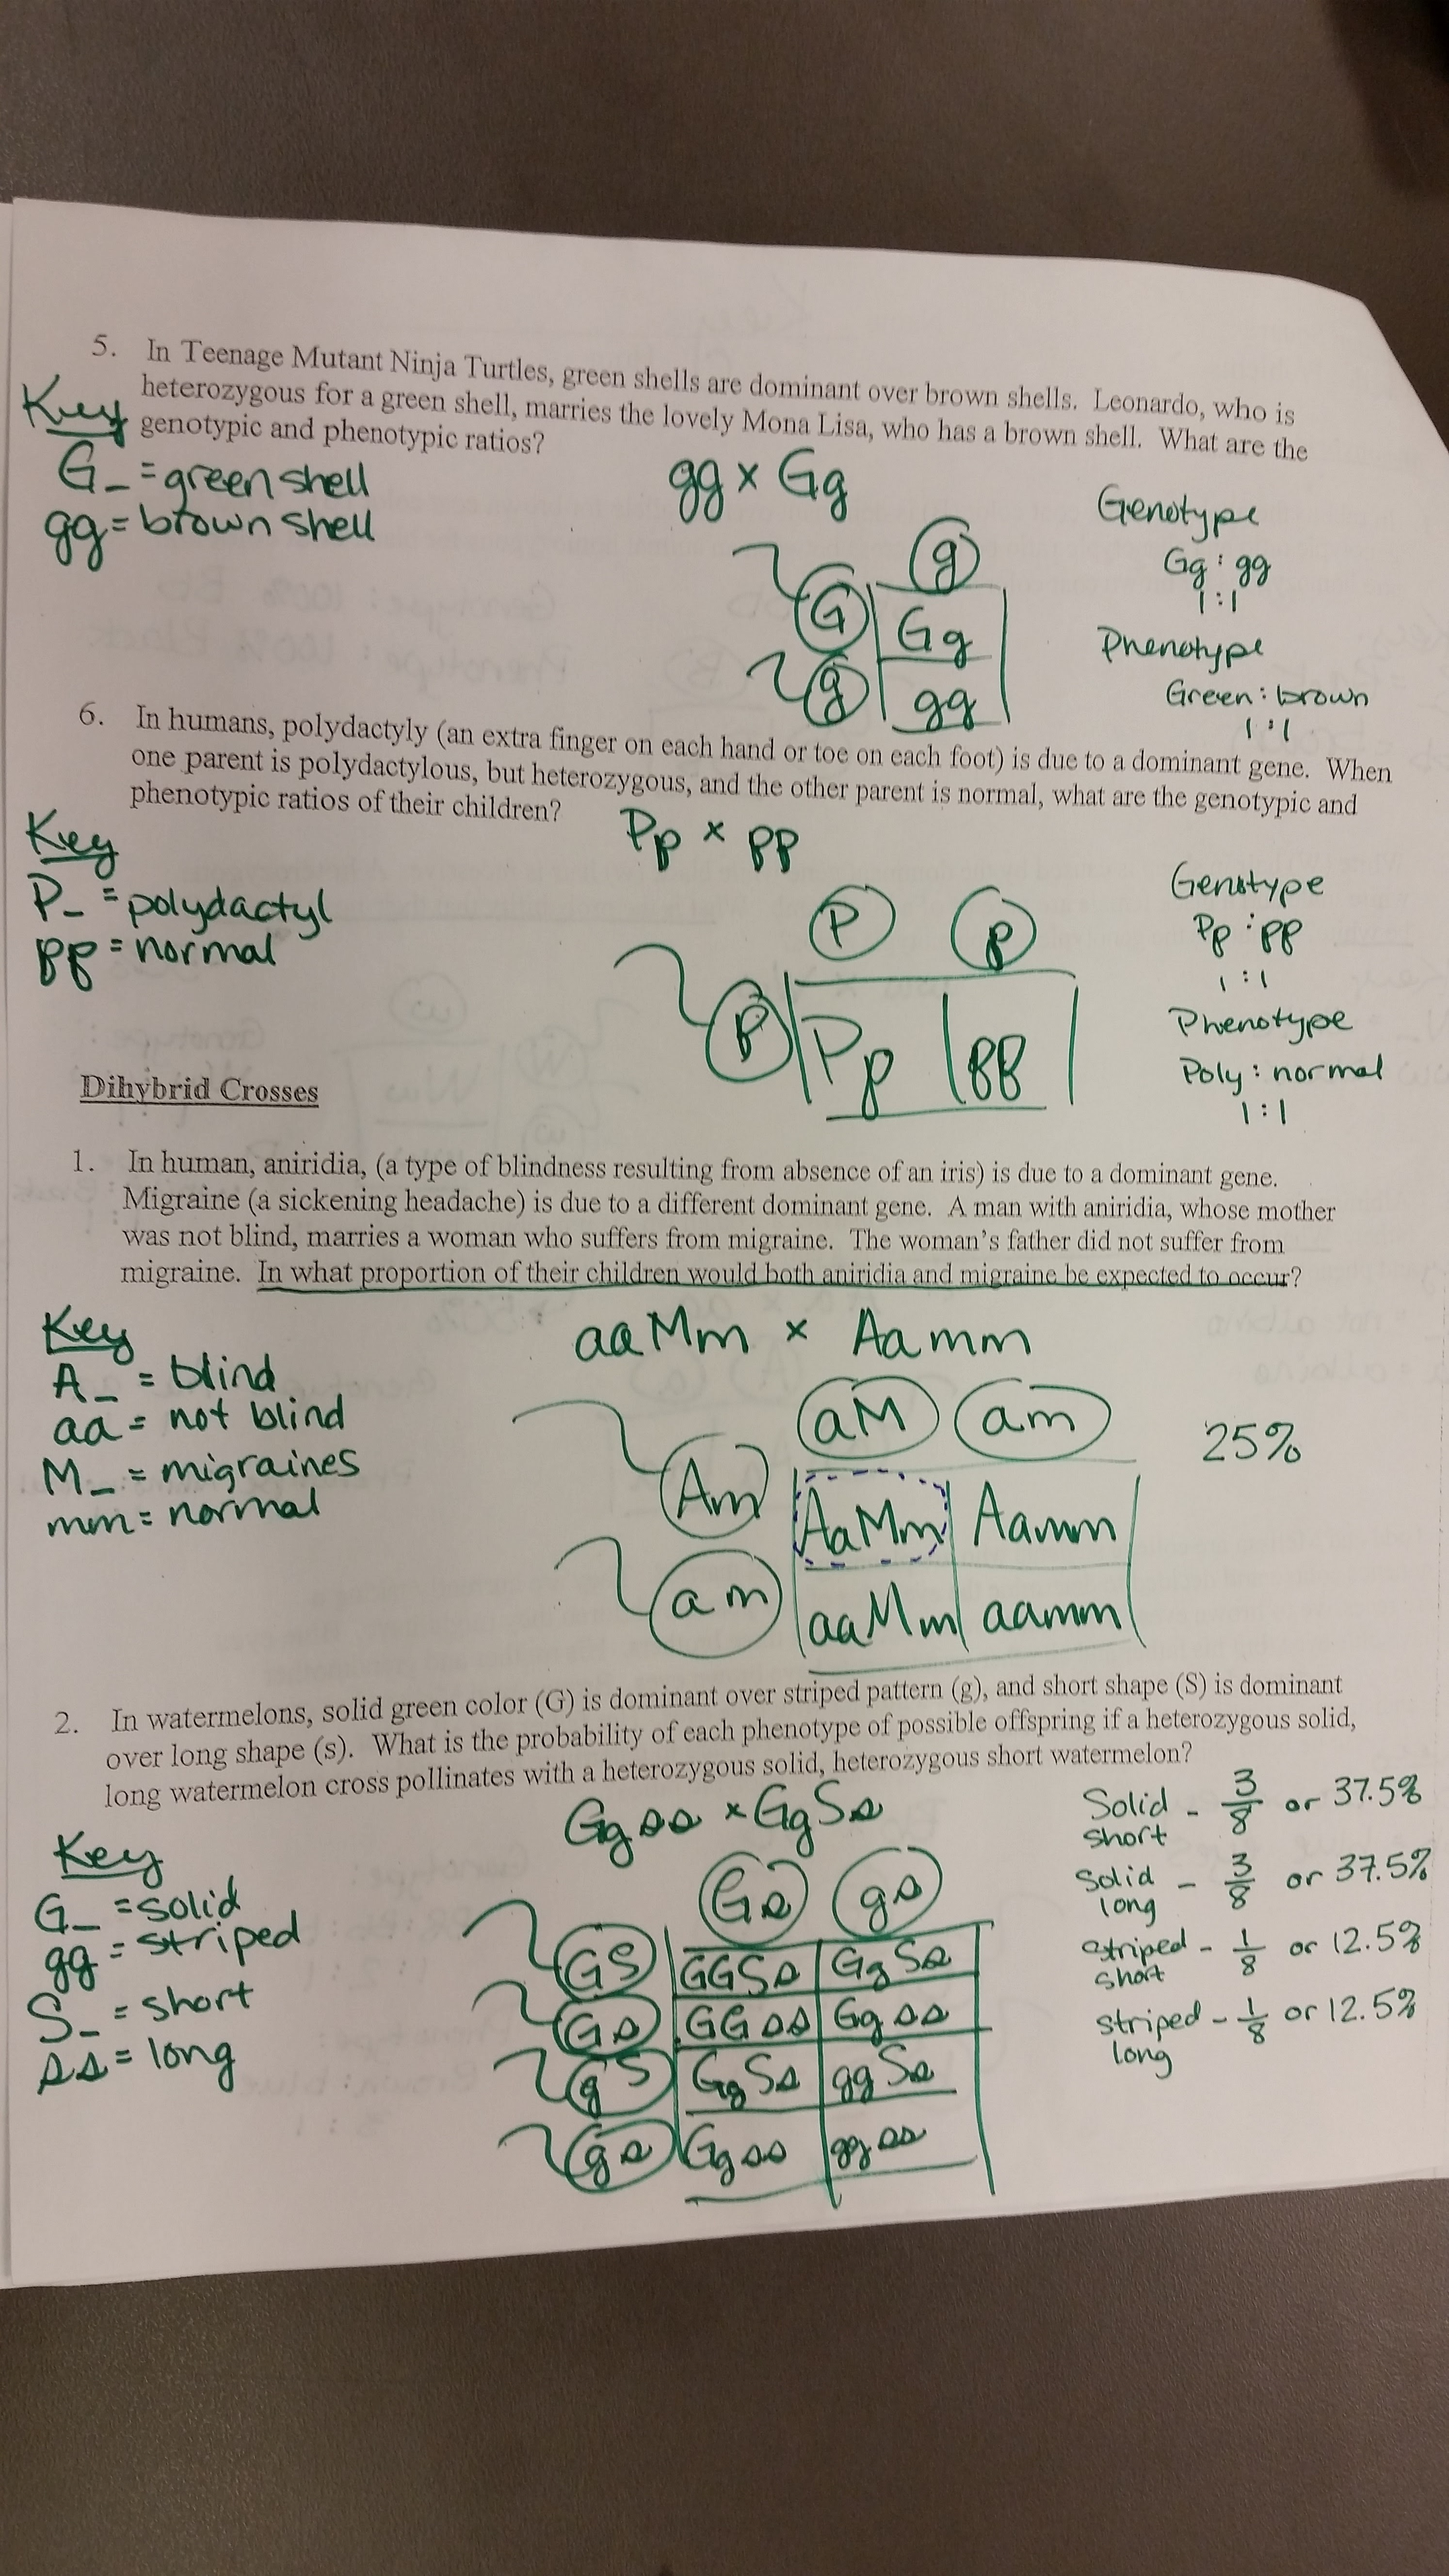 5. In Teenage Mutant Ninja Turtles, green shells are dominant over brown shells. Leonardo, who is
heterozygous for a green shell, marries the lovely Mona Lisa, who has a brown shell. What are the
genotypic and phenotypic ratios?
Key
G_ = green shell
gg = brown shell
gg x Gg
g
G Gg
g gg
Genotype
Gg : gg
1:1
Phenotype
Green : brown
1:1
6. In humans, polydactyly (an extra finger on each hand or toe on each foot) is due to a dominant gene. When
one parent is polydactylous, but heterozygous, and the other parent is normal, what are the genotypic and
phenotypic ratios of their children?
Key
P_ = polydactyl
pp = normal
Pp x pp
P p
p Pp pp
Genotype
Pp : pp
1:1
Phenotype
Poly : normal
1:1
Dihybrid Crosses
1. In human, aniridia, (a type of blindness resulting from absence of an iris) is due to a dominant gene.
Migraine (a sickening headache) is due to a different dominant gene. A man with aniridia, whose mother
was not blind, marries a woman who suffers from migraine. The woman's father did not suffer from
migraine. In what proportion of their children would both aniridia and migraine be expected to occur?
Key
A_ = blind
aa = not blind
M_ = migraines
mm = normal
aaMm x Aamm
aM am
Am AaMm Aamm
am aaMm aamm
25%
2. In watermelons, solid green color (G) is dominant over striped pattern (g), and short shape (S) is dominant
over long shape (s). What is the probability of each phenotype of possible offspring if a heterozygous solid,
long watermelon cross pollinates with a heterozygous solid, heterozygous short watermelon?
Key
G_ = solid
gg = striped
S_ = short
ss = long
Ggss x GgSs
Gs gs
GS GGSs GgSs
Gs GGss Ggss
gS GgSs ggSs
gs Ggss ggss
Solid short - 3/8 or 37.5%
Solid long - 3/8 or 37.5%
striped short - 1/8 or 12.5%
striped long - 1/8 or 12.5%